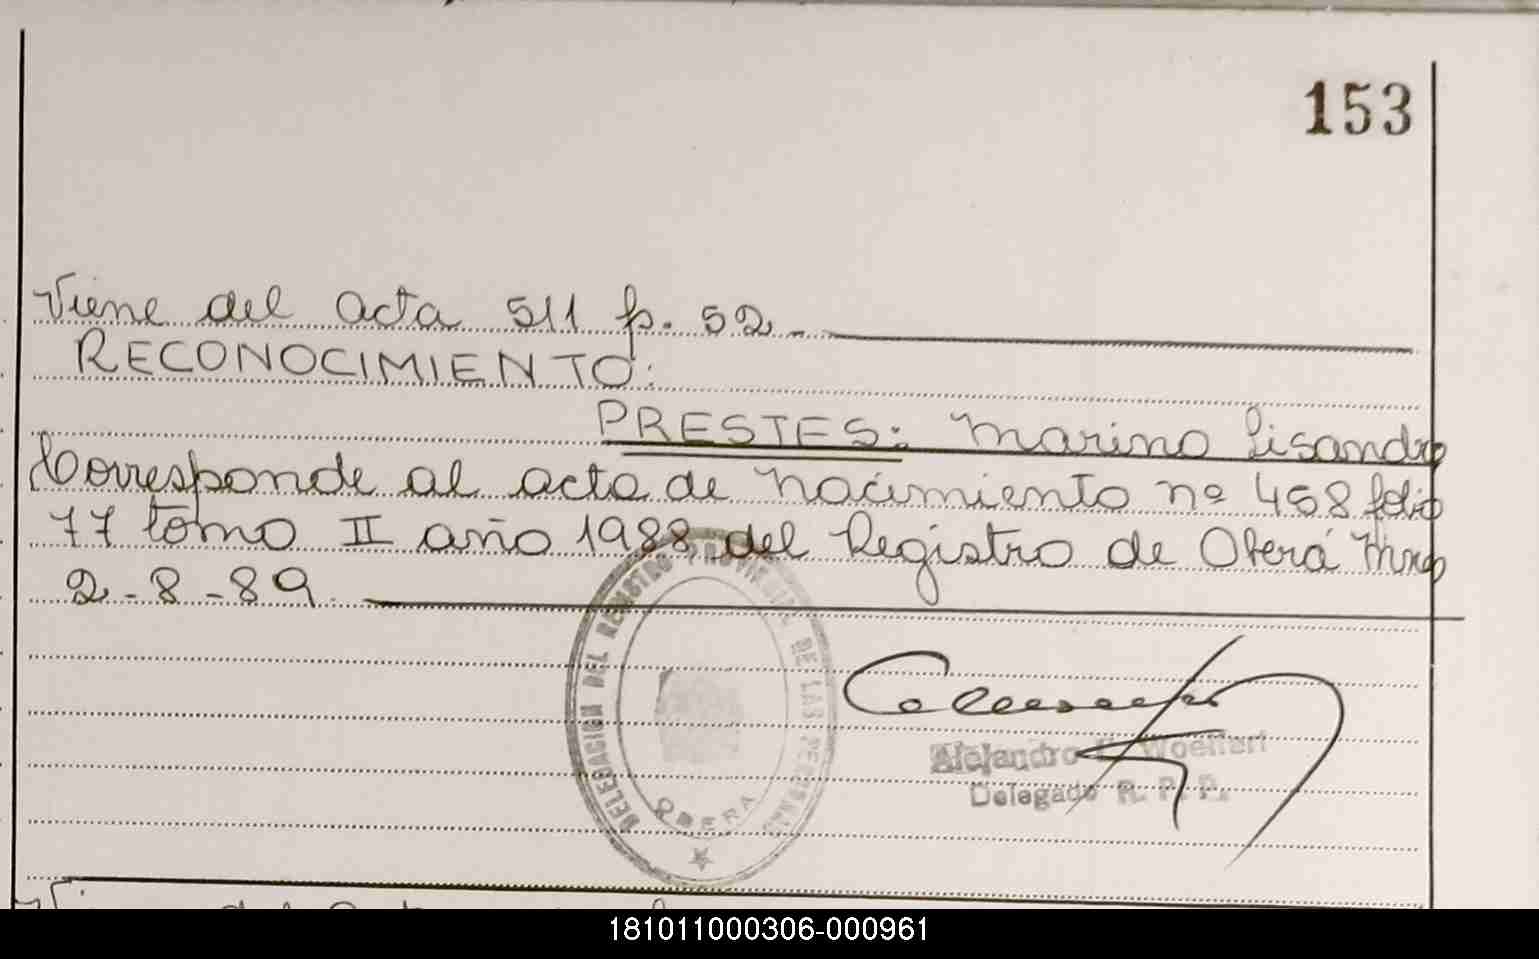 153
Viene del acta 511 f. 52.
RECONOCIMIENTO:
PRESTES: Marino Lisandro
Corresponde al acta de nacimiento nº 458 folio
77 tomo II año 1988 del Registro de Oberá Mnes
2-8-89
DELEGACION DEL REGISTRO PROVINCIAL DE LAS PERSONAS
OBERA
Alejandro Woelfert
Delegado R. P. P.
181011000306-000961